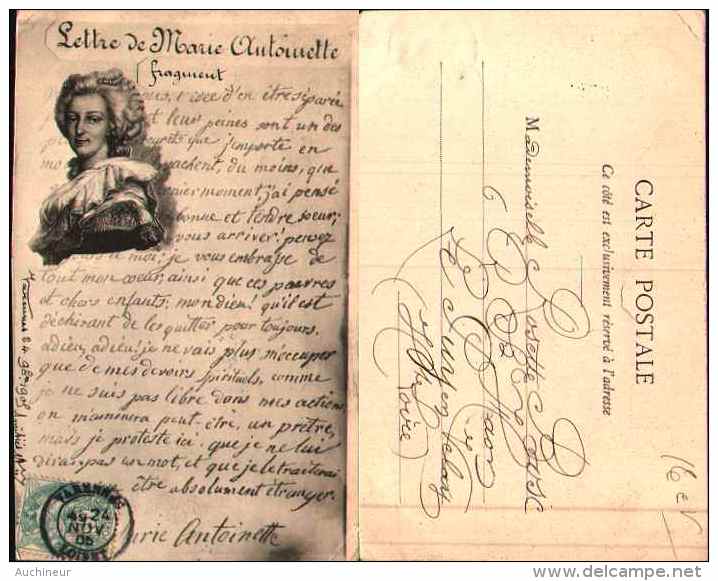 Lettre de Marie Antoinette
(fragment
d'en être séparée
et leurs peines sont un des
que j'emporte en
mo sachent, du moins, que
dernier moment, j'ai pensé
bonne et tendre soeur;
vous arriver! pensez
moi; je vous embrasse de
tout mon cœur, ainsi que ces pauvres
et chers enfants; mon dieu! qu'il est
déchirant de les quitter pour toujours.
adieu, adieu! je ne vais plus m'occuper
que de mes devoirs spirituels, comme
je ne suis pas libre dans mes actions
on m'amènera peut-être, un prêtre,
mais je proteste ici que je ne lui
dirai pas un mot, et que je le traiterai
être absolument étranger.
Marie Antoinette
VARENNES
24
NOV
05
LOIRET
CARTE POSTALE
Ce côté est exclusivement réservé à l'adresse
Mademoiselle Rosette
Le Puy en Velay
(Hte Loire)
© Auchineur
www.delcampe.net